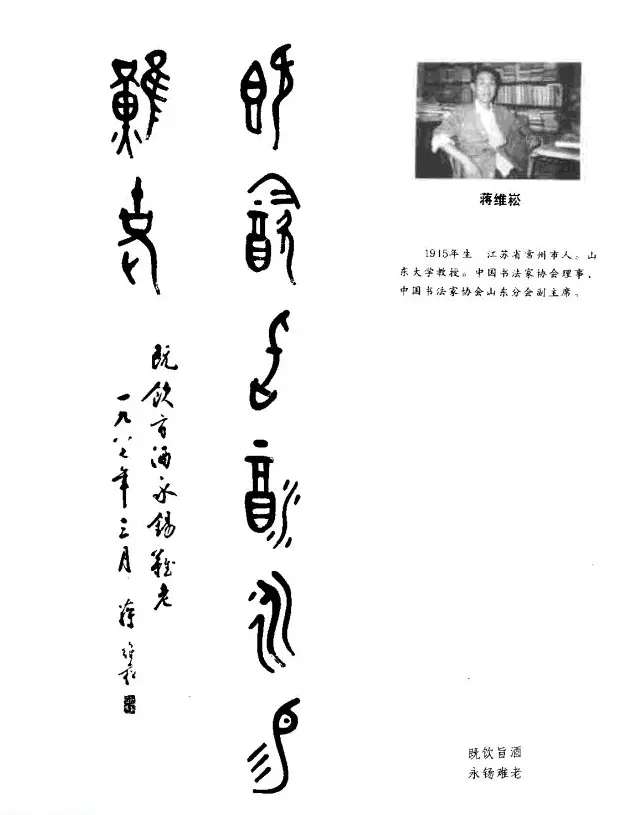 既飲旨酒永錫
難老
既飲旨酒永錫難老
一九八七年三月 蔣維崧
蒋维崧
1915年生 江苏省常州市人。山
东大学教授。中国书法家协会理事、
中国书法家协会山东分会副主席。
既饮旨酒
永钖难老